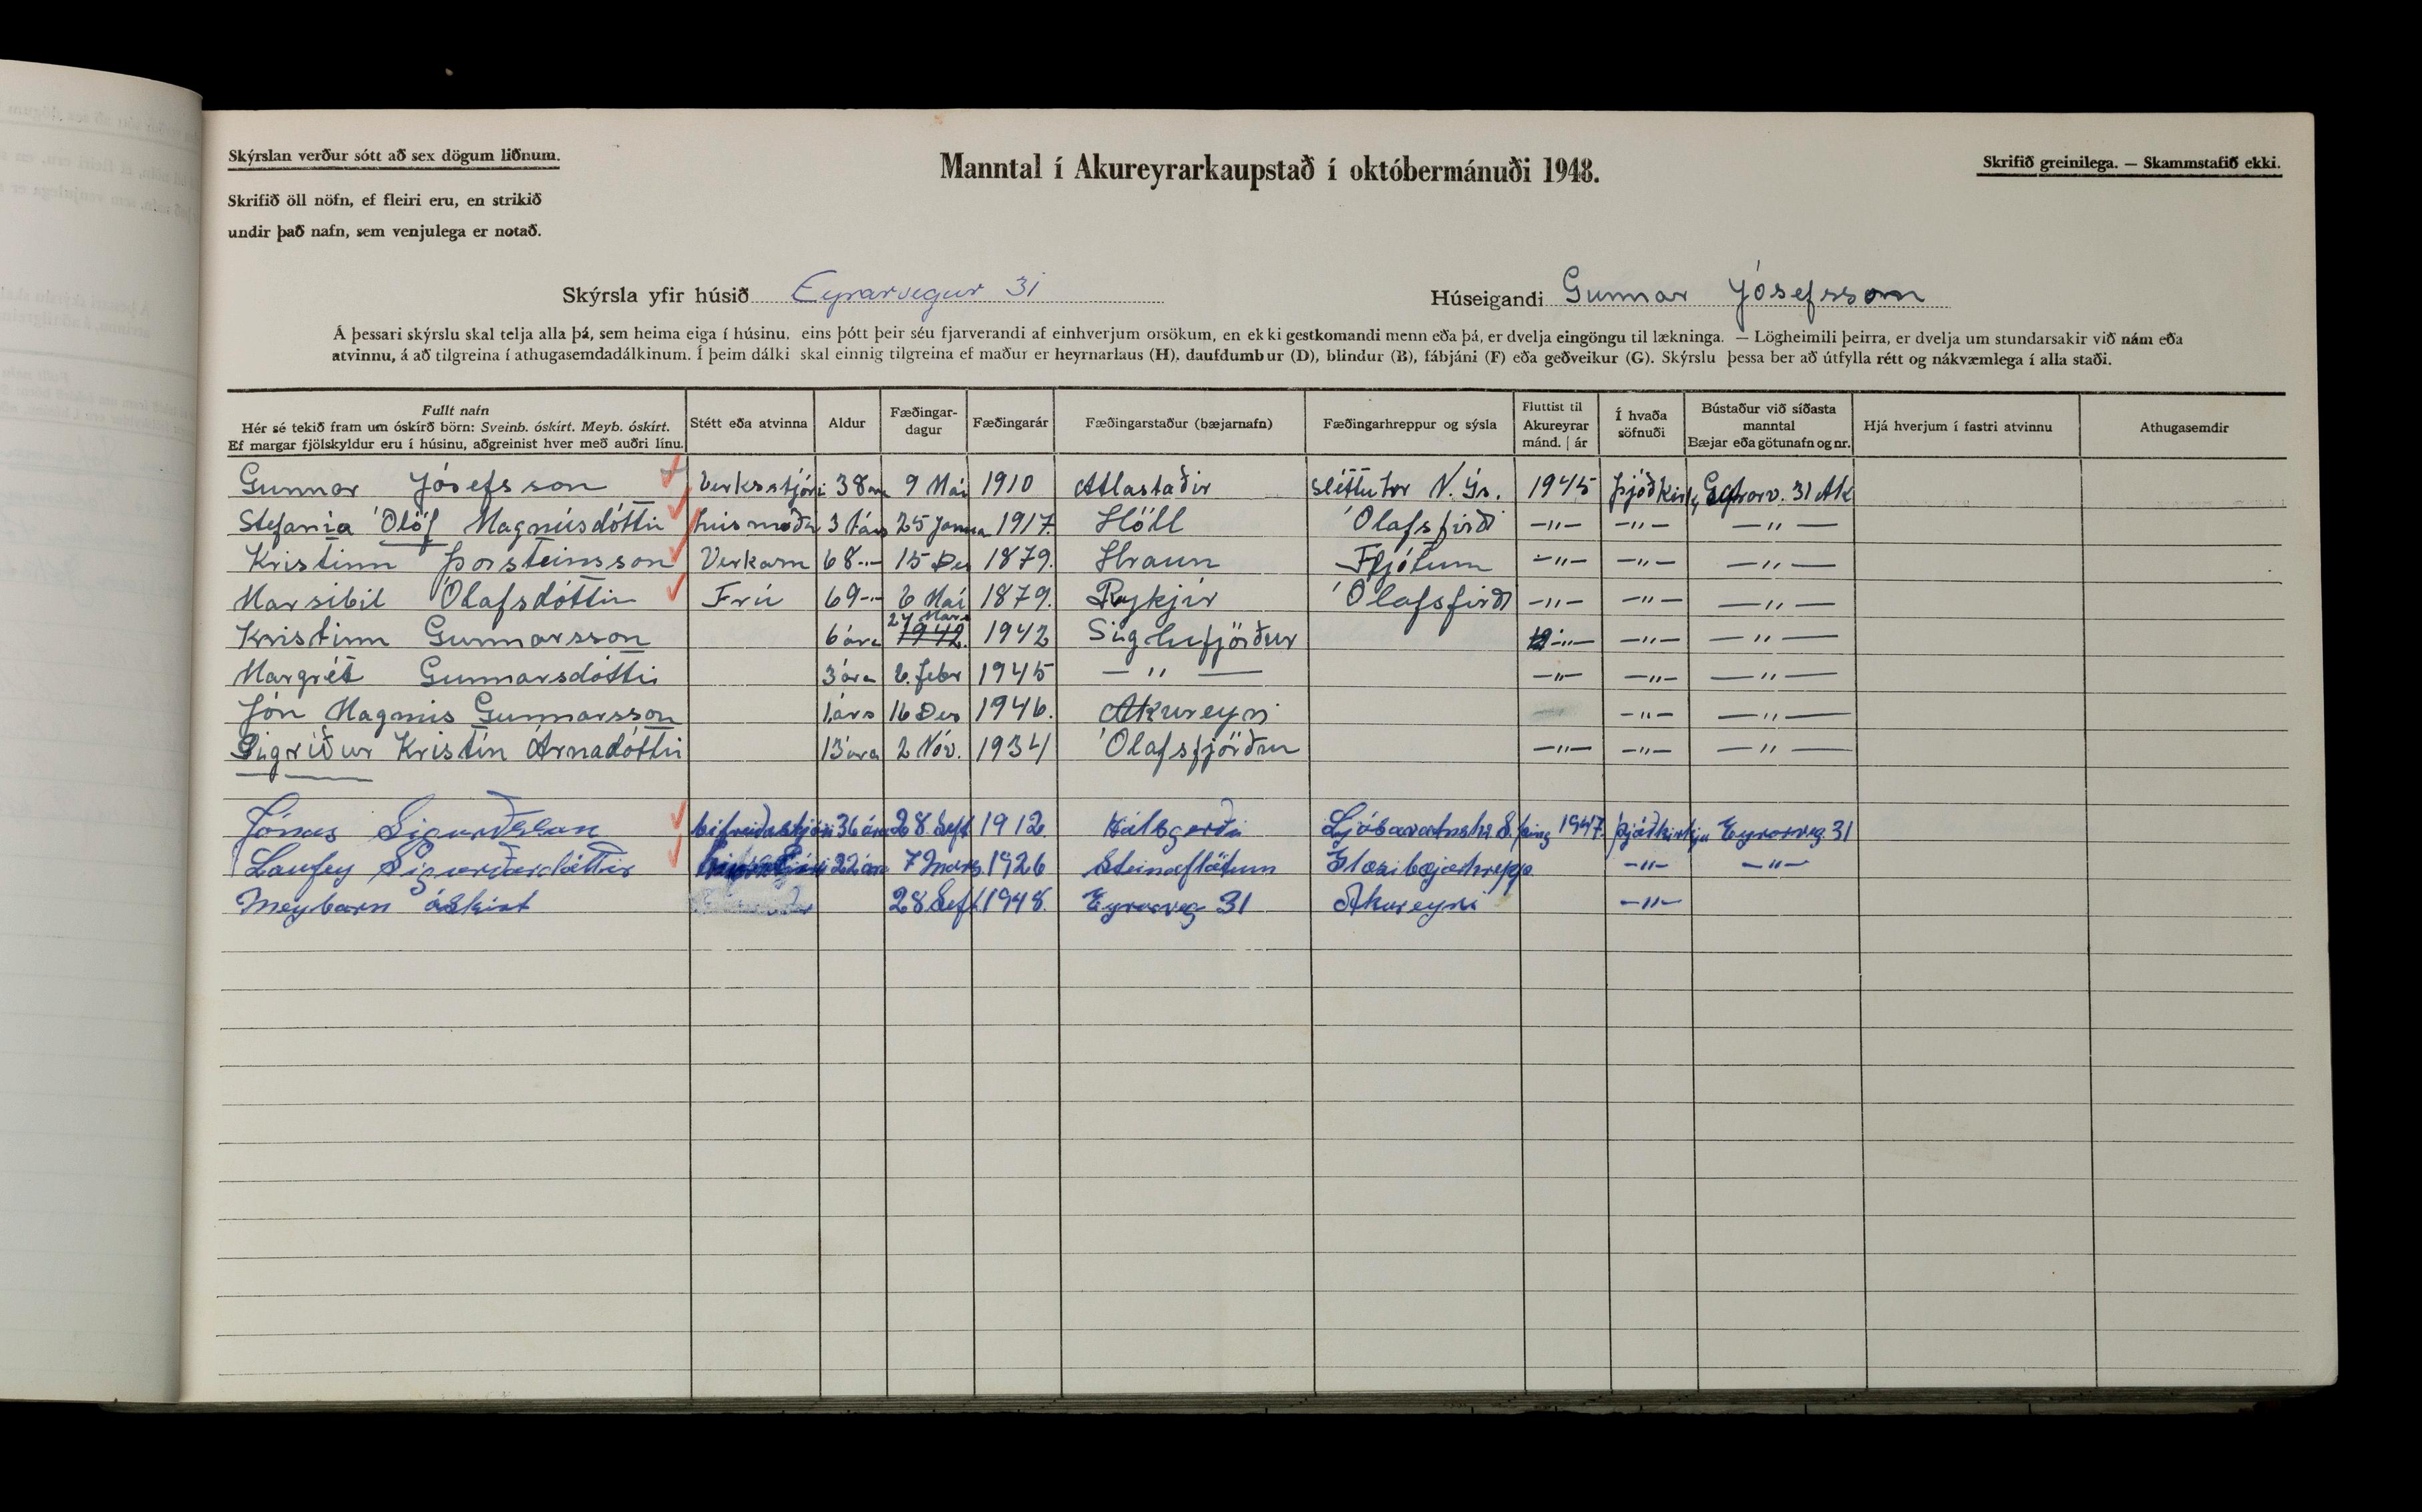 Skýrslan verður sótt að sex dögum liðnum.
Skrifið öll nöfn, ef fleiri eru, en strikið
undir það nafn, sem venjulega er notað.
Manntal í Akureyrarkaupstað í októbermánuði 1948.
Skrifið greinilega. — Skammstafið ekki.
Skýrsla yfir húsið Eyrarvegur 31
Húseigandi Gunnar Jósefsson
Á þessari skýrslu skal telja alla þá, sem heima eiga í húsinu, eins þótt þeir séu fjarverandi af einhverjum orsökum, en ekki gestkomandi menn eða þá, er dvelja eingöngu til lækninga. — Lögheimili þeirra, er dvelja um stundarsakir við nám eða
atvinnu, á að tilgreina í athugasemdadálkinum. Í þeim dálki skal einnig tilgreina ef maður er heyrnarlaus (H), daufdumbur (D), blindur (B), fábjáni (F) eða geðveikur (G). Skýrslu þessa ber að útfylla rétt og nákvæmlega í alla staði.
Fullt nafn
Hér sé tekið fram um óskírð börn: Sveinb. óskírt. Meyb. óskírt.
Ef margar fjölskyldur eru í húsinu, aðgreinist hver með auðri línu.
Stétt eða atvinna
Aldur
Fæðingar-
dagur
Fæðingarár
Fæðingarstaður (bæjarnafn)
Fæðingarhreppur og sýsla
Fluttist til
Akureyrar
mánd. | ár
Í hvaða
söfnuði
Bústaður við síðasta
manntal
Bæjar eða götunafn og nr.
Hjá hverjum í fastri atvinnu
Athugasemdir
Gunnar Jósefsson Verksstjóri 38 9 Mai 1910 Atlastaðir Sléttuhr N. Ís. 1945 Þjóðkirk 31 Ak
Stefanía Ólöf Magnúsdóttir húsmóðir 31árs 25 Janua 1917. Höll Ólafsfirði —"— —"— —"—
Kristinn Þorsteinsson Verkam 68 —"— 15 Des 1879. Hraun Fljótum —"— —"— —"—
Marsibil Ólafsdóttir Frú 69 —"— 6 Maí 1879. Reykjir Ólafsfirði —"— —"— —"—
Kristinn Gunnarsson 6 ára 24 Mars 1942 Siglufjörður —"— —"— —"—
Margrét Gunnarsdóttir 3 ára 2. febr 1945 —"— —"— —"— —"—
Jón Magnús Gunnarsson 1 árs 16 Des 1946. Akureyri —"— —"—
Sigríður Kristín Árnadóttir 13 ára 2 Nóv. 1934 Ólafsfjörður —"— —"— —"—
Jónas Sigurðsson bifreiðastjóri 36 ára 28. Sept 1912 Hálsgerði Ljósavatnshr. S. þing 1947. þjóðkirkju Eyrarveg. 31
Laufey Sigurðardóttir 22 ára 7 Mars. 1926 Steinaflötum Glæsibæjarhrepp. —"— —"—
Meybarn óskírt 28 Sept. 1948. Eyrarveg 31 Akureyri —"—